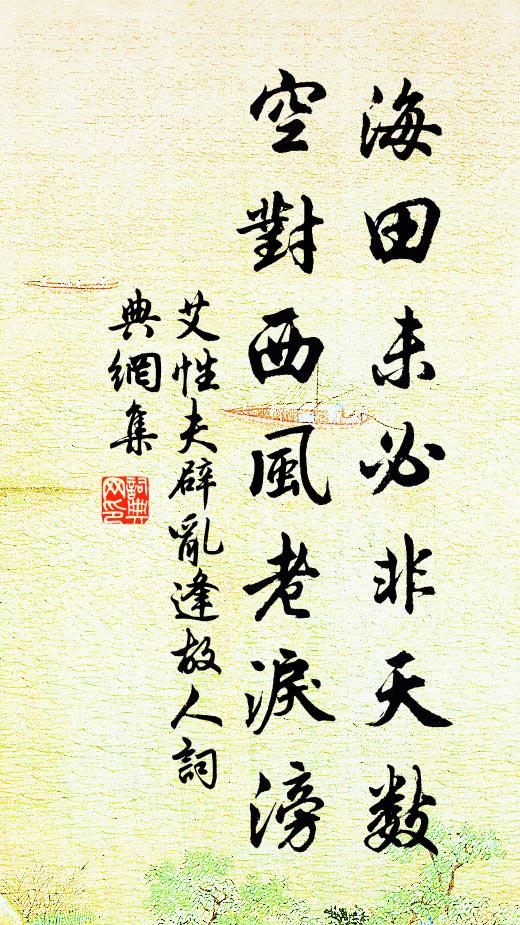 海田未必非天数
空對西風老淚滂
艾性夫辟亂逢故人詞
典網集
詞典
网印